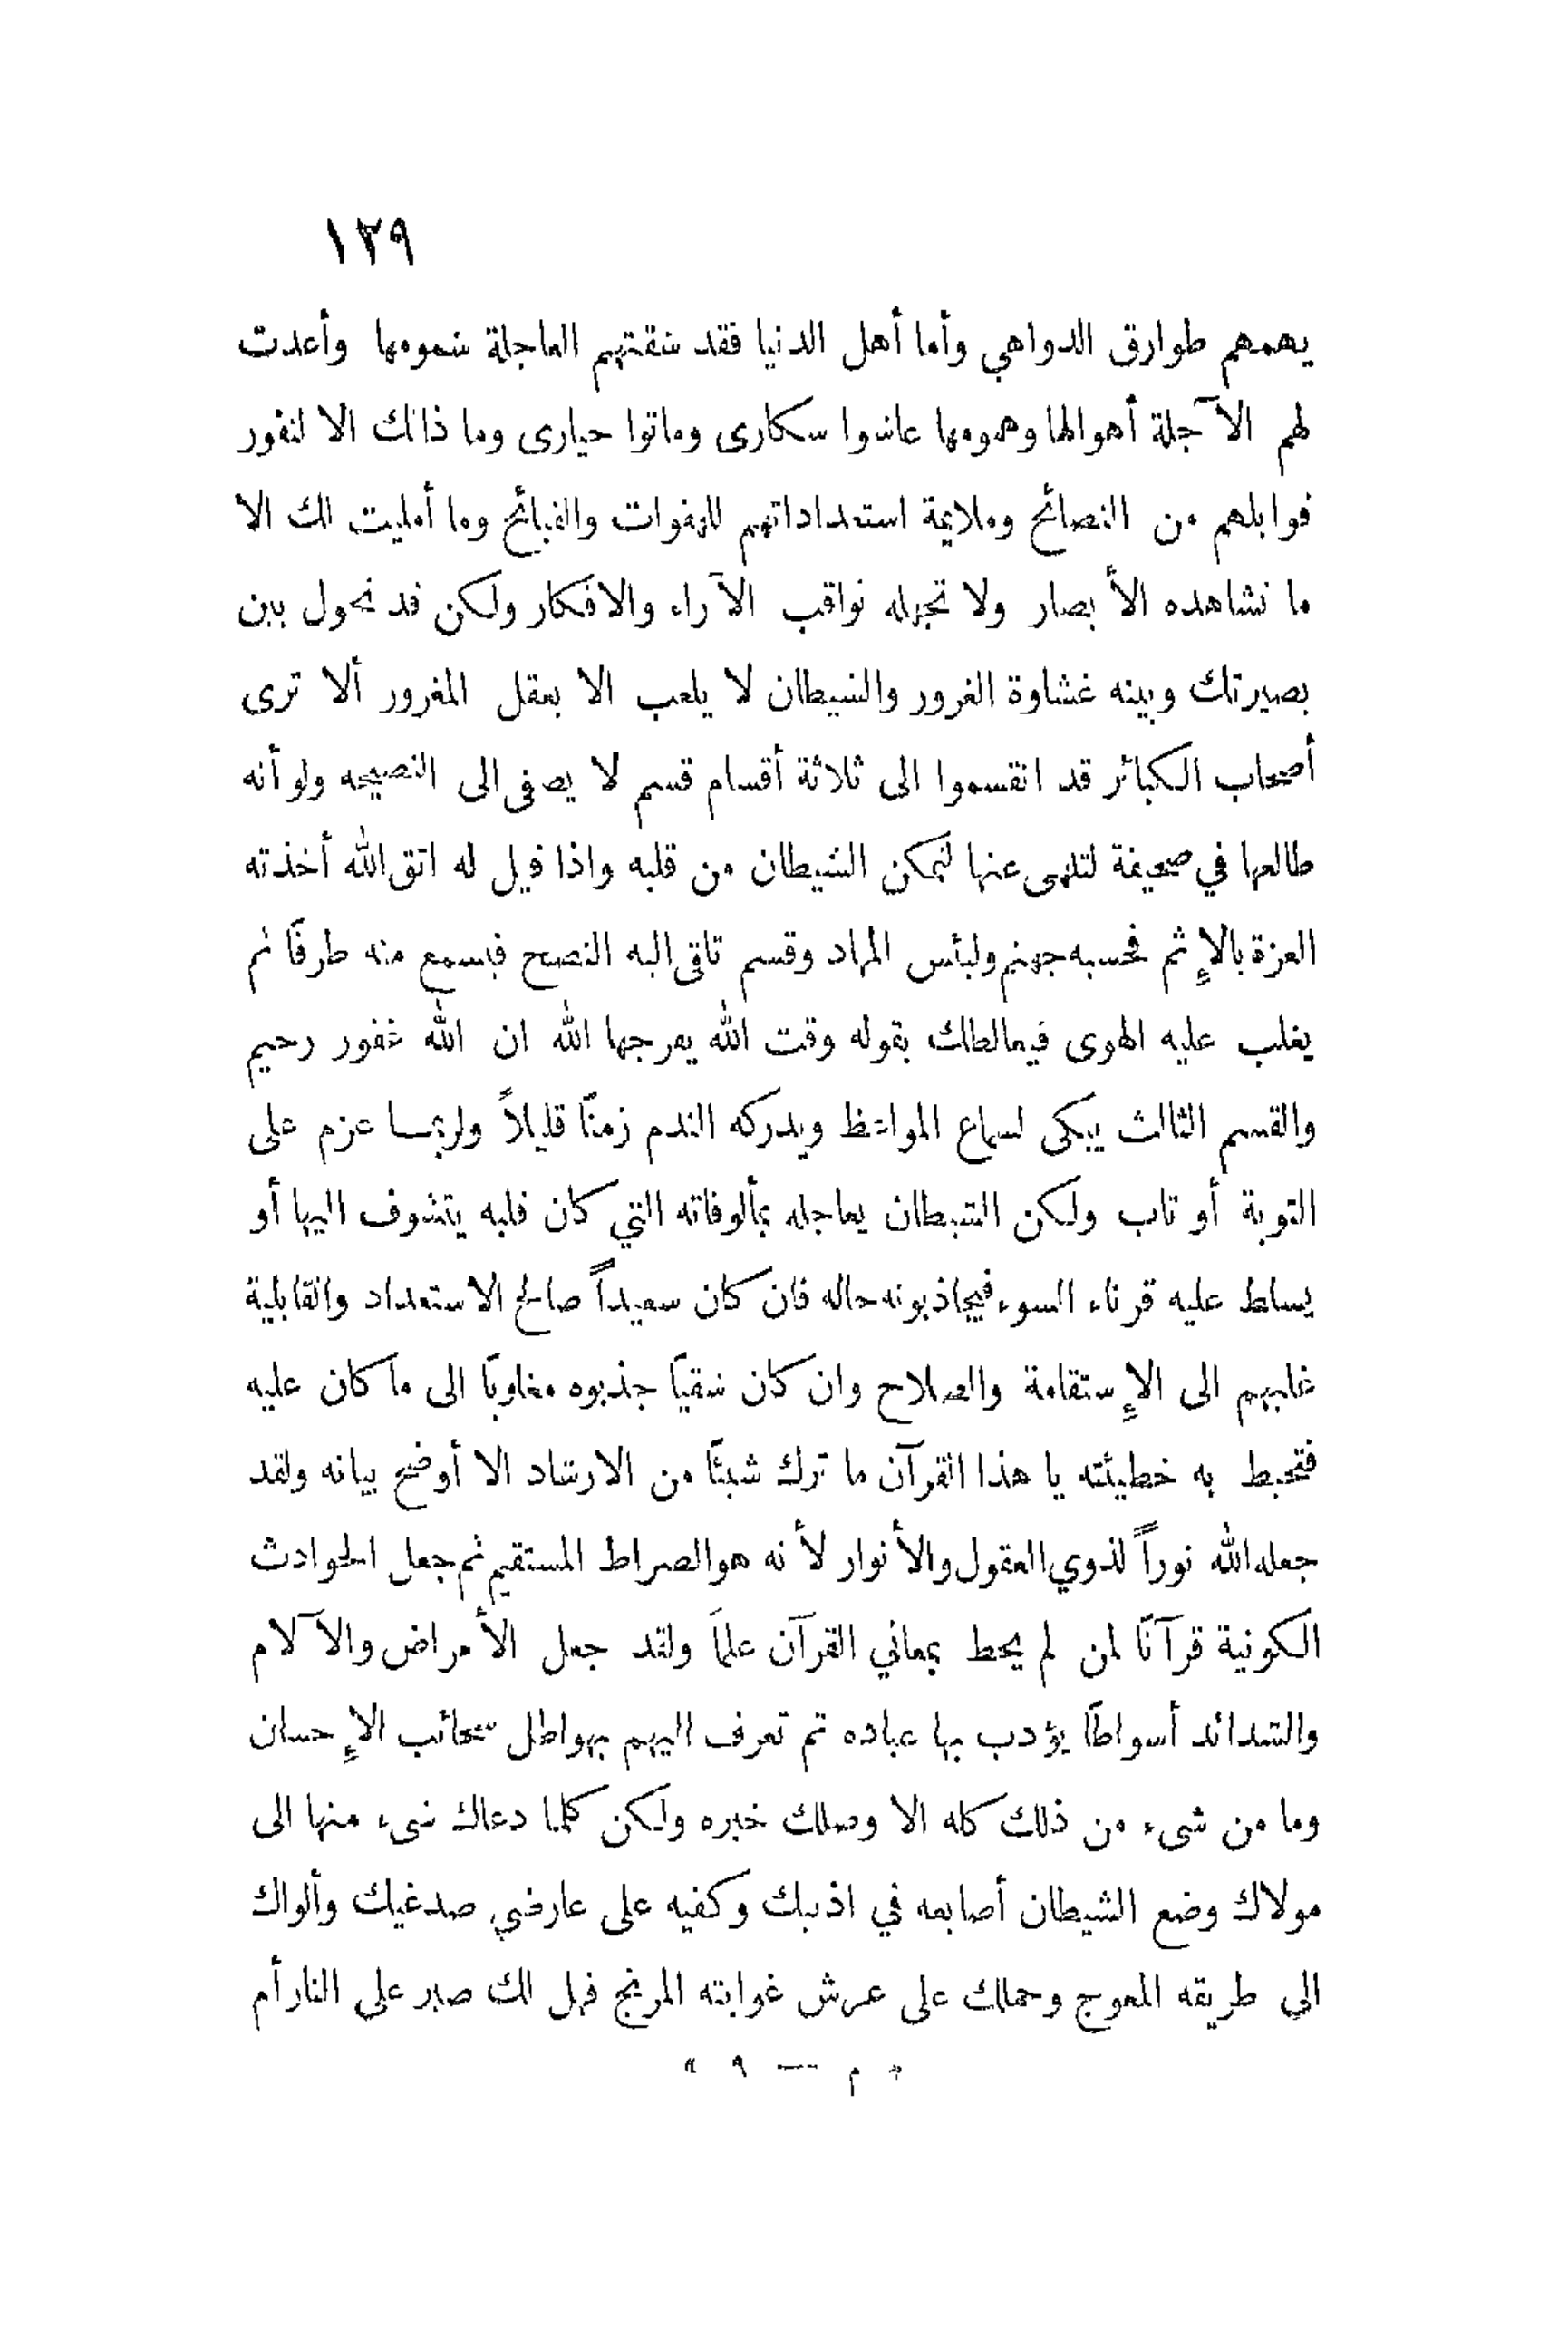 ١٢٩
يهمهم طوارق الدواهي وأما أهل الدنيا فقد سقتهم العاجلة سمومها وأعدت
لهم الآجلة أهوالها وهمومها عاشوا سكارى وماتوا حيارى وما ذاك الا لنفور
قوابلهم من النصائح وملايمة استعداداتهم للهفوات والقبائح وما أمليت لك الا
ما تشاهده الأبصار ولا تجهله ثواقب الآراء والافكار ولكن قد تحول بين
بصيرتك وبينه غشاوة الغرور والشيطان لا يلعب الا بعقل المغرور ألا ترى
أصحاب الكبائر قد انقسموا الى ثلاثة أقسام قسم لا يصغى الى النصيحه ولو أنه
طالعها في صحيفة لتلهى عنها لتمكن الشيطان من قلبه واذا قيل له اتق الله أخذته
العزة بالإثم فحسبه جهنم ولبئس المهاد وقسم تلقى اليه النصح فيسمع منه طرفًا ثم
يغلب عليه الهوى فيغالطك بقوله وقت الله يفرجها الله ان الله غفور رحيم
والقسم الثالث يبكى لسماع المواعظ ويدركه الندم زمنًا قليلاً ولربمـا عزم على
التوبة أو تاب ولكن الشيطان يعاجله بمألوفاته التي كان قلبه يتشوف اليها أو
يسلط عليه قرناء السوء فيجاذبونه حاله فان كان سعيداً صالح الاستعداد والقابلية
غلبهم الى الإستقامة والصلاح وان كان شقيًا جذبوه مغلوبًا الى ما كان عليه
فتحبط به خطيئته يا هذا القرآن ما ترك شيئًا من الارشاد الا أوضح بيانه ولقد
جعله الله نوراً لذوي العقول والأنوار لأنه هو الصراط المستقيم ثم جعل الحوادث
الكونية قرآنًا لمن لم يحط بمعاني القرآن علمًا ولقد جعل الأمراض والآلام
والشدائد أسواطًا يؤدب بها عباده ثم تعرف اليهم بهواطل سحائب الإحسان
وما من شىء من ذلك كله الا وصلك خبره ولكن كلما دعاك شىء منها الى
مولاك وضع الشيطان أصابعه في اذنيك وكفيه على عارضي صدغيك وألواك
الى طريقه المعوج وحملك على عرش غوايته المرتج فهل لك صبر على النار أم
« م — ٩ »